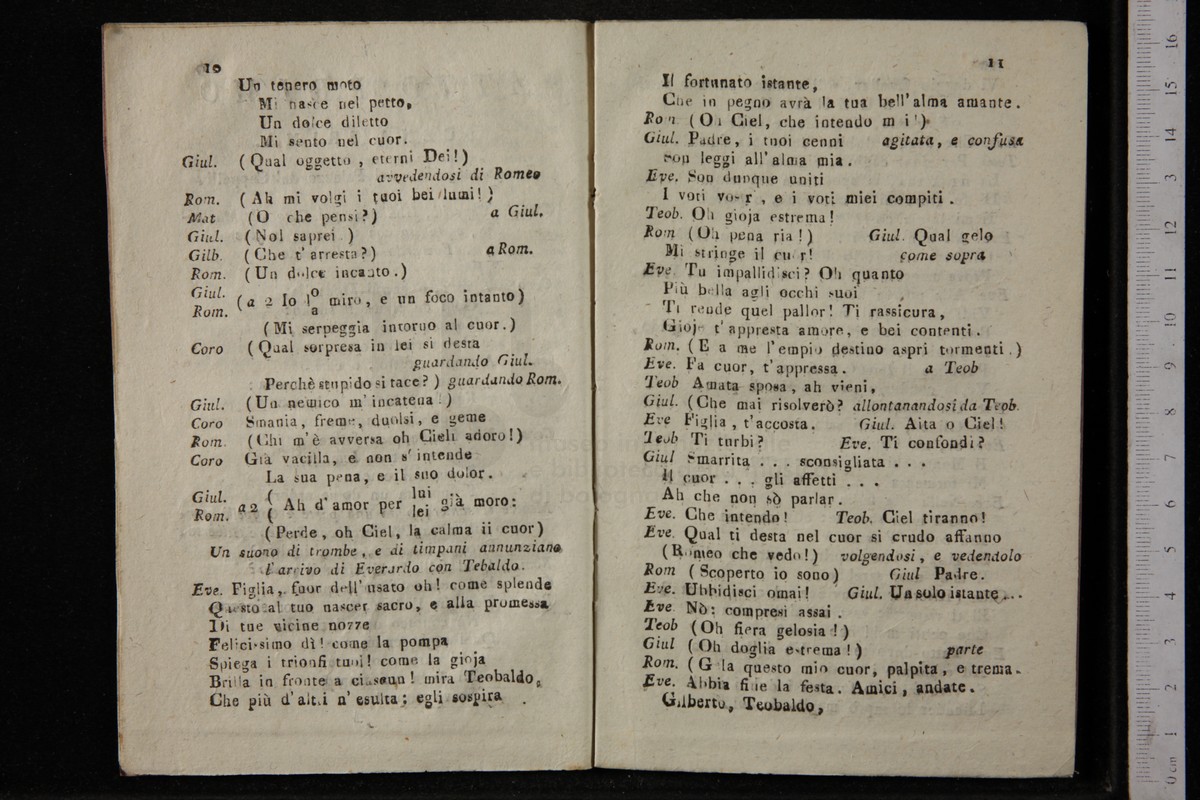 10
Un tenero moto
Mi nasce nel petto,
Un dolce diletto
Mi sento nel cuor.
Giul. (Qual oggetto, eterni Dei!)
avvedendosi di Romeo
Rom. (Ah mi volgi i tuoi bei lumi!)
Mat (O che pensi?) a Giul.
Giul. (Nol saprei.)
Gilb. (Che t'arresta?) a Rom.
Rom. (Un dolce incanto.)
Giul. Rom. (a 2 Io lo/a miro, e un foco intanto)
(Mi serpeggia intorno al cuor.)
Coro (Qual sorpresa in lei si desta
guardando Giul.
Perchè stupido si tace?) guardando Rom.
Giul. (Un nemico m'incatena.)
Coro Smania, freme, duolsi, e geme
Rom. (Chi m'è avversa oh Cieli adoro!)
Coro Già vacilla, e non s'intende
La sua pena, e il suo dolor.
Giul. Rom. a 2 ( Ah d'amor per lui/lei già moro:
(Perde, oh Ciel, la calma ii cuor)
Un suono di trombe, e di timpani annunziano
l'arrivo di Everardo con Tebaldo.
Eve. Figlia, fuor dell'usato oh! come splende
Questo al tuo nascer sacro, e alla promessa
Di tue vicine nozze
Felicissimo dì! come la pompa
Spiega i trionfi tuoi! come la gioja
Brilla in fronte a ciascun! mira Teobaldo,
Che più d'altri n'esulta; egli sospira
11
Il fortunato istante,
Che in pegno avrà la tua bell'alma amante.
Rom (Oi Ciel, che intendo m i!)
Giul. Padre, i tuoi cenni agitata, e confusa
Son leggi all'alma mia.
Eve. Son dunque uniti
I voti, e i voti miei compiti.
Teob. Oh gioja estrema!
Rom (Oh pena ria!) Giul. Qual gelo
Mi stringe il cuor! come sopra
Eve Tu impallidisci? Oh quanto
Più bella agli occhi suoi
Ti rende quel pallor! Ti rassicura,
Gioje t'appresta amore, e bei contenti.
Rom. (E a me l'empio destino aspri tormenti.)
Eve. Fa cuor, t'appressa. a Teob
Teob Amata sposa, ah vieni,
Giul. (Che mai risolverò? allontanandosi da Teob.
Eve Figlia, t'accosta. Giul. Aita o Ciel!
Teob Ti turbi? Eve. Ti confondi?
Giul Smarrita . . . sconsigliata . . .
Il cuor . . . gli affetti . . .
Ah che non sò parlar.
Eve. Che intendo! Teob. Ciel tiranno!
Eve. Qual ti desta nel cuor si crudo affanno
(Romeo che vedo!) volgendosi, e vedendolo
Rom (Scoperto io sono) Giul Padre.
Eve. Ubbidisci omai! Giul. Un solo istante...
Eve Nò: compresi assai.
Teob (Oh fiera gelosia!)
Giul (Oh doglia estrema!) parte
Rom. (G la questo mio cuor, palpita, e trema.
Eve. Abbia fine la festa. Amici, andate.
Gilberto, Teobaldo,